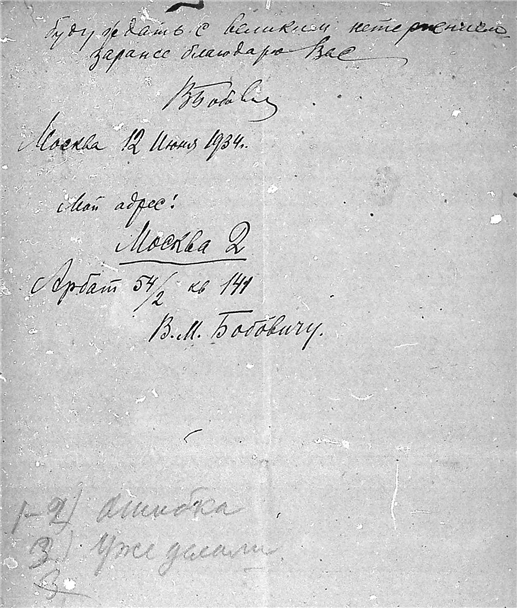 буду ждать с великим нетерпением
заранее благодарю Вас
Москва 12 Июня 1934 г.
Мой адрес:
Москва 2
Арбат 54/2 кв 141
В.М. Бобовичу.
1-2) Ошибка
3) Уже делали
3